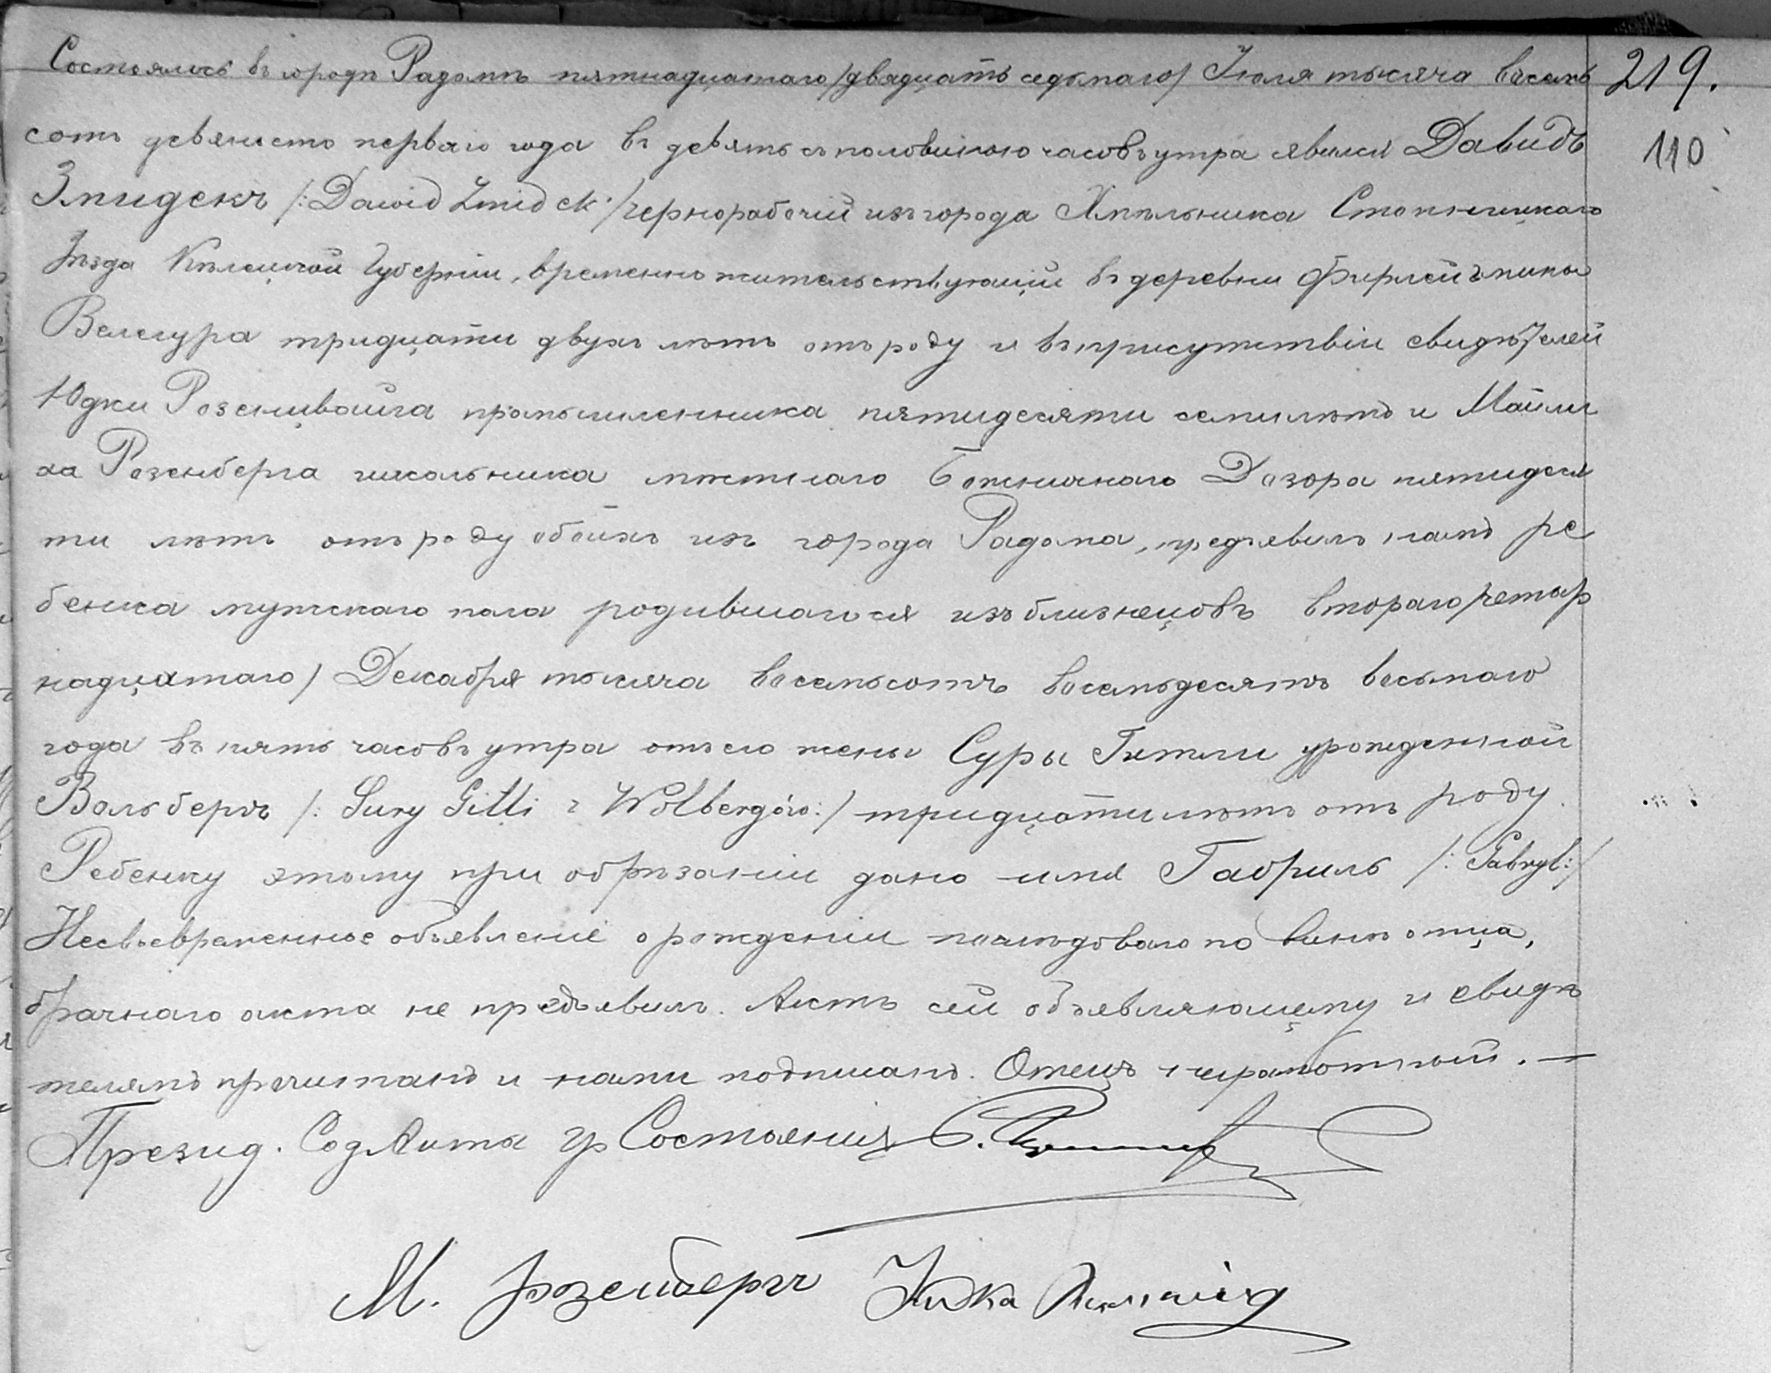 Состоялось въ городѣ Радомѣ пятнадцатаго /двадцать седьмаго/ Іюля тысяча восемь
219.
сотъ девяносто перваго года въ девять съ половиною часовъ утра явился Давидъ
110
Змидекъ /: Dawid Zmidek :/ чернорабочій изъ города Хмѣльника Стопницкаго
Уѣзда Кѣлецкой Губерніи, временно жительствующій въ деревни Фирлей гмины
Велегура тридцати двухъ лѣтъ отъ роду и въ присутствіи свидѣтелей
Юдки Розенцвайга промышленника пятидесяти семи лѣтъ и Майли
ха Розенберга школьника мѣстнаго Божничнаго Дозора пятидеся
ти лѣтъ отъ роду обоихъ изъ города Радома, предъявилъ намъ ре
бенка мужскаго пола родившагося изъ близнецовъ втораго /четыр
надцатаго/ Декабря тысяча восемьсотъ восемьдесятъ восьмаго
года въ пять часовъ утра отъ его жены Суры Гитли урожденной
Вольбергъ /: Sury Gitli z Wolbergów :/ тридцати лѣтъ отъ роду.
Ребенку этому при обрѣзаніи дано имя Габриль /: Gabryl :/
Несвоевременное объявленіе о рожденіи послѣдовало по винѣ отца,
брачнаго акта не предъявилъ. Актъ сей объявляющему и свидѣ
телямъ прочитанъ и нами подписанъ. Отецъ неграмотный. —
Презид. Сод. Акты гр Состоянія
М. Розенбергъ Юдка